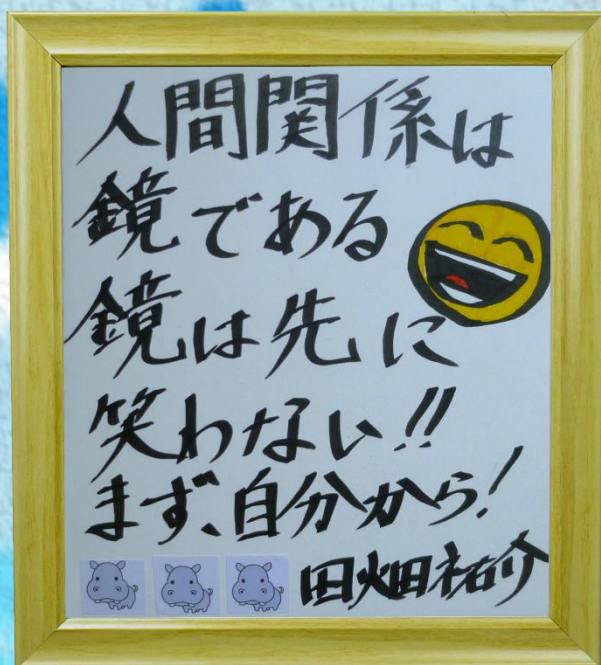 人間関係は
鏡である
鏡は先に
笑わない!!
まず、自分から!
田畑祐介